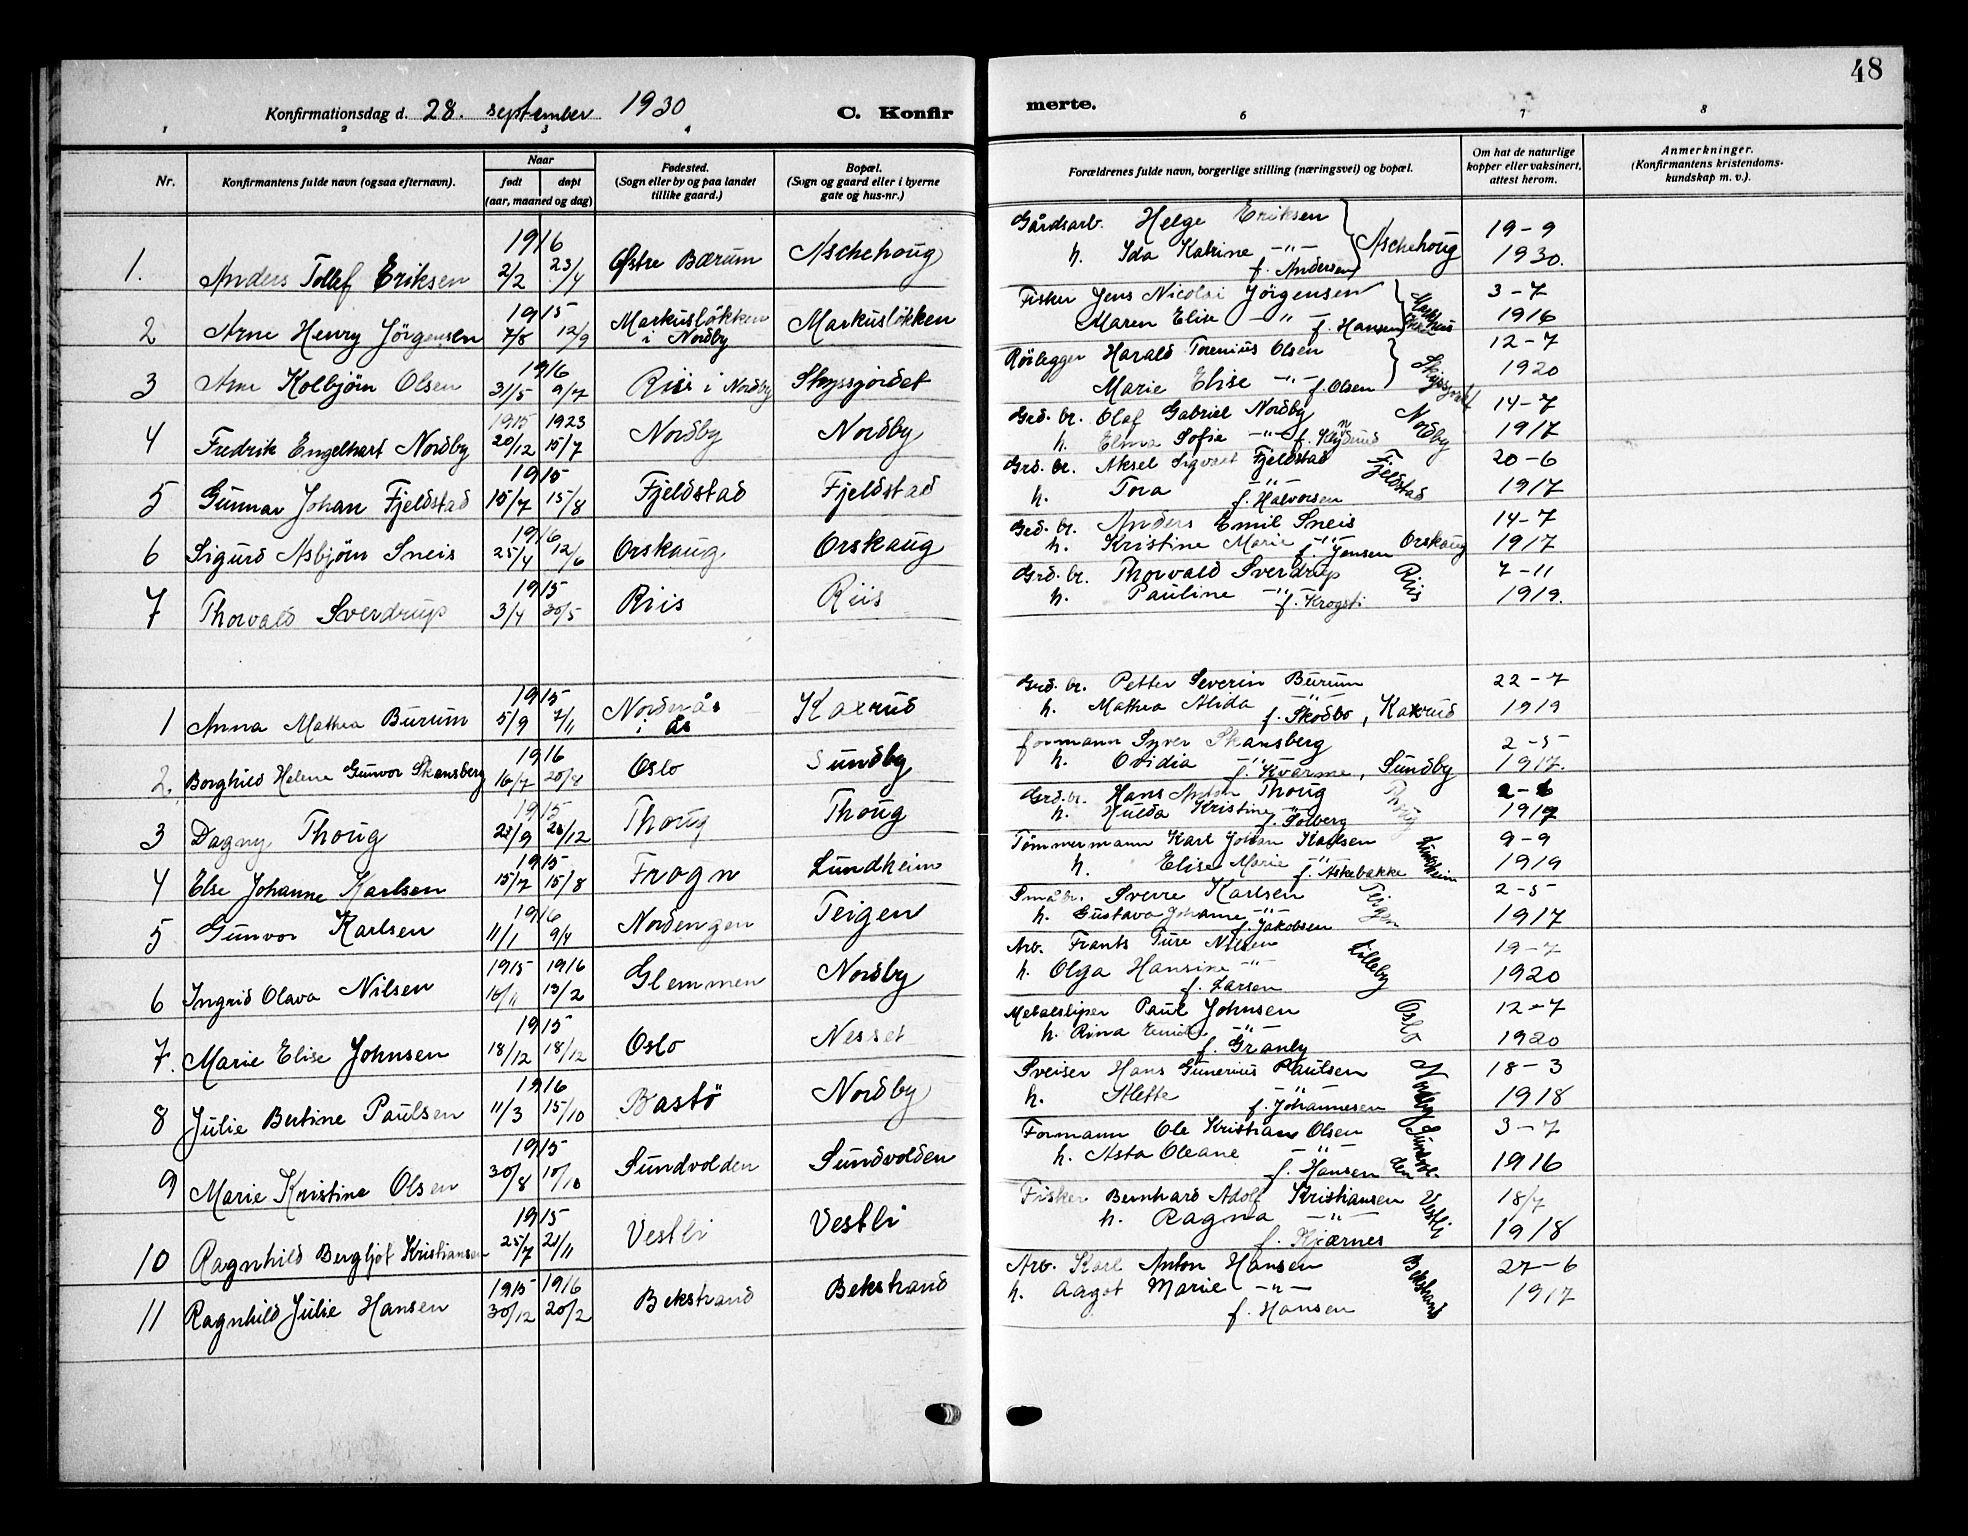 48
Konfirmationsdag d. 28. september 1930 C. Konfir
merte.
1 2 3 4
6 7 8
Nr.
Konfirmantens fulde navn (ogsaa efternavn).
Naar
født
døpt
(aar, maaned og dag)
Fødested.
(Sogn eller by og paa landet
tillike gaard.)
Bopæl.
(Sogn og gaard eller i byerne
gate og hus-nr.)
Forældrenes fulde navn, borgerlige stilling (næringsvei) og bopæl.
Om hat de naturlige
kopper eller vaksinert,
attest herom.
Anmerkninger.
(Konfirmantens kristendoms-
kundskap m. v.).
1. Anders Tollef Eriksen 1916 2/2 23/4 Østre Bærum Aschehoug
Gårdsarb. Helge Eriksen 19-9
h. Ida Katrine -"- Aschehoug 1930.
f. Andersen
2 Arne Henry Jörgensen 1915 7/8 12/9 Markuslökken i Nordby Markuslökken
Fisker Jens Nicolai Jörgensen 3-7
Maren Elise -"- f. Hansen 1916
3 Arne Kolbjörn Olsen 1916 31/5 9/7 Riis i Nordby Skyssjordet
Rörlegger Harald Torenius Olsen 12-7
Marie Elise -"- f. Olsen Skyssjordet 1920
4 Fredrik Engelhart Nordby 1915 20/12 1923 15/7 Nordby Nordby
Grd. br. Olaf Gabriel Nordby Nordby 14-7
h. Elma Sofie -"- f. 1917
5 Gunnar Johan Fjeldstad 1915 15/7 15/8 Fjeldstad Fjeldstad
Grd. br. Aksel Sigvart Fjeldstad Fjeldstad 20-6
h. Tora -"- f. Halvorsen 1917
6 Sigurd Asbjörn Sneis 1916 25/4 12/6 Orskaug Orskaug
Grd. br. Anders Emil Sneis 14-7
h. Kristine Marie -"- f. Jensen Orskaug 1917
7 Thorvald Sverdrup 1915 3/4 30/5 Riis Riis
Grd. br. Thorvald Sverdrup Riis 7-11
h. Pauline -"- f. Krogsti 1919.
1 Anna Mathea Burum 1915 5/9 7/11 Nordnås i Ås Kaxrud
Grd. br. Petter Severin Burum 22-7
h. Mathea Alida -"- f. Skodbo, Kaxrud 1919
2. Borghild Helene Gunvor Skansberg 1916 16/7 20/8 Oslo Sundby
formann Syver Skansberg 2-5
h. Ovidia -"- f. Kvarme, Sundby 1917.
3 Dagny Thoug 1915 23/9 26/12 Thoug Thoug
Grd. br. Hans Anton Thoug Thoug
h. Hulda Kristine -"- f. Solberg
4 Else Johanne Karlsen 1915 15/7 15/8 Frogn Lundheim
Tömmermann Karl Johan Karlsen Lundheim 9-9
h. Elise Marie -"- f. Askebakke 1919
5 Gunvor Karlsen 1916 11/1 9/4 Nordengen Teigen
Småbr. Sverre Karlsen Teigen 2-5
h. Gustava Johanne -"- f. Jakobsen 1917
6 Ingrid Olava Nilsen 1915 16/11 1916 13/2 Glemmen Nordby
Arb. Frants Ture Nilsen Lilleby 19-7
h. Olga Hansine -"- f. Larsen 1920
7. Marie Elise Johnsen 1915 18/12 18/12 Oslo Nesset
Metalsliper Paul Johnsen Oslo 12-7
h. Rina Emilie -"- f. Granly 1920
8 Julie Bertine Paulsen 1916 11/3 15/10 Bastö Nordby
Sveiser Hans Gunerius Paulsen Nordby 18-3
h. Alette -"- f. Johannesen 1918
9 Marie Kristine Olsen 1915 30/8 10/10 Sundvolden Sundvolden
Formann Ole Kristian Olsen Sundvolden 3-7
h. Asta Oleane -"- f. Hansen 1916
10 Ragnhild Bergljot Kristiansen 1915 25/7 21/11 Vestli Vestli
Fisker Bernhard Adolf Kristiansen Vestli 18/7
h. Ragna -"- f. Kjærnes 1918
11 Ragnhild Julie Hansen 1915 30/12 1916 20/2 Bekstrand Bekstrand
Arb. Karl Anton Hansen Bekstrand 27-6
h. Aagot Marie -"- f. Hansen 1917